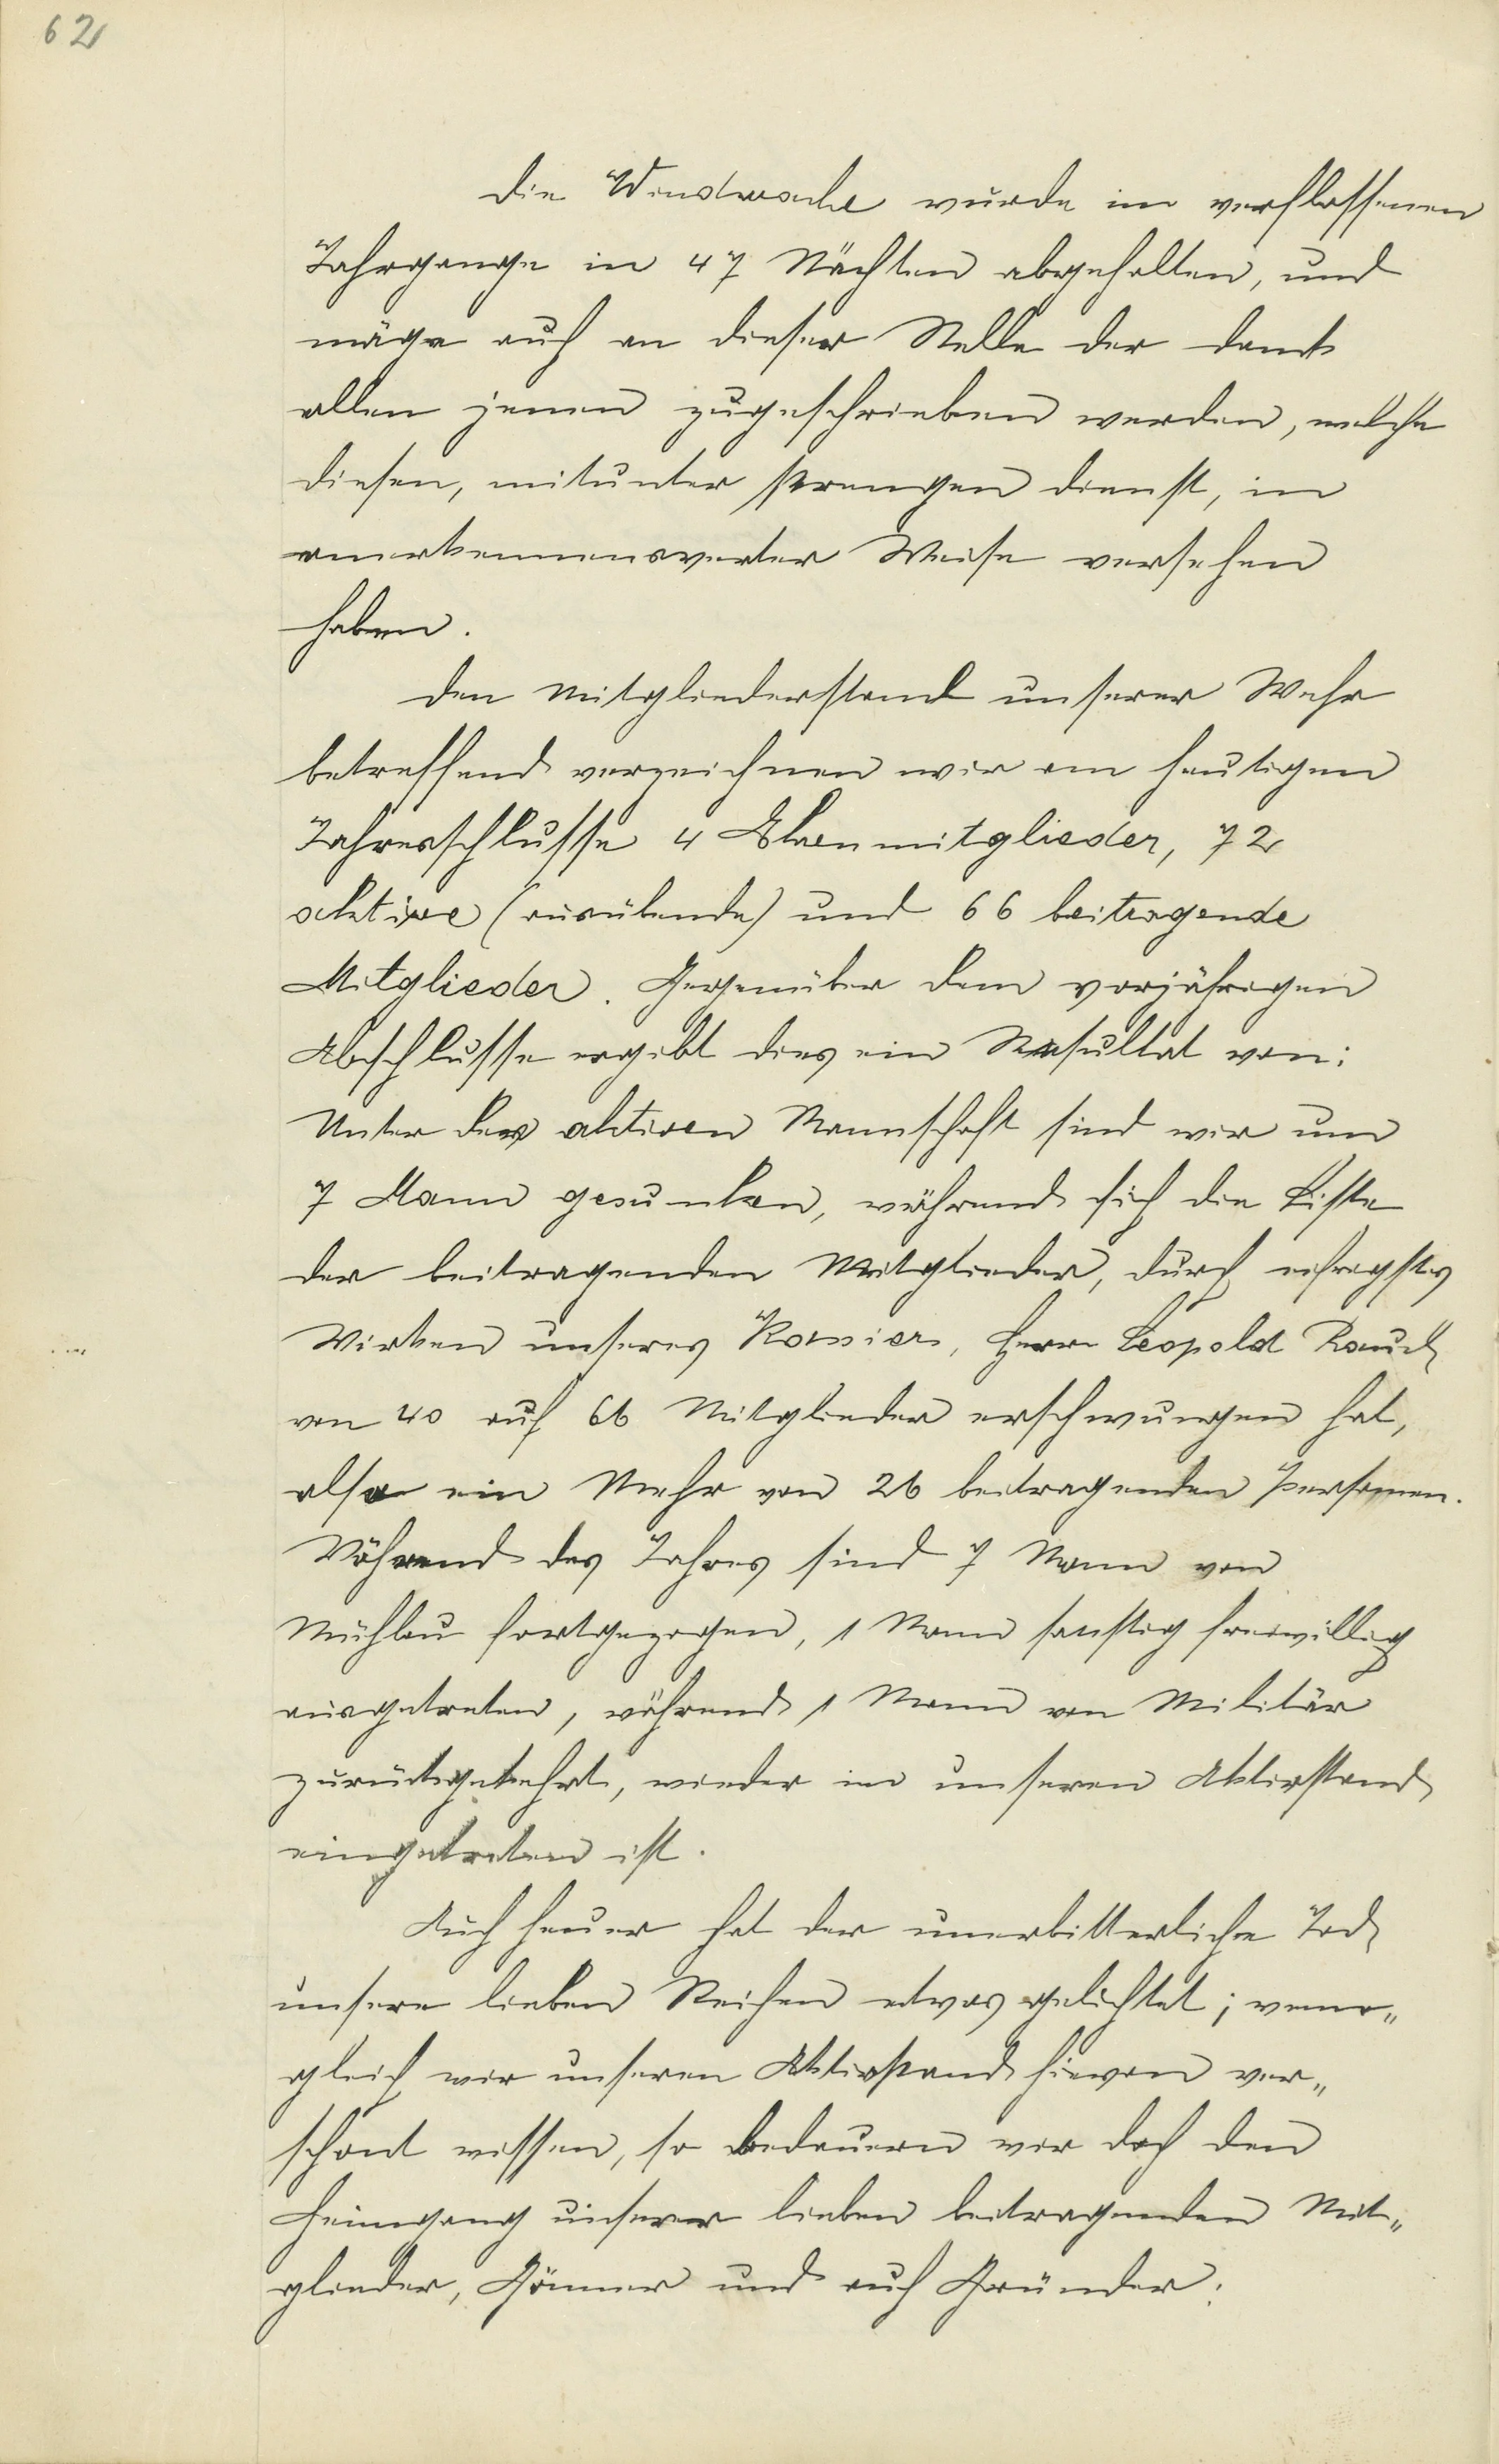 62
Die Windwache wurde im verflossenen
Jahrgange in 47 Nächten abgehalten, und
möge auch an dieser Stelle der Dank
allen jenen zugeschrieben werden, welche
diesen, mitunter strengen Dienst, in
anerkennenswerter Weise versehen
haben.
Den Mitgliederstand unserer Wehr
betreffend verzeichnen wir am heutigen
Jahresschlusse 4 Ehrenmitglieder, 72
aktive (ausübende) und 66 beitragende
Mitglieder. Gegenüber dem vorjährigen
Abschlusse ergibt dies ein Resultat von:
Unter der aktiven Mannschaft sind wir um
7 Mann gesunken, während sich die Liste
der beitragenden Mitglieder, durch eifrigstes
Wirken unseres Kassier, Herr Leopold Rauch
von 40 auf 66 Mitglieder erschwungen hat,
also ein Mehr von 26 beitragenden Personen.
Während des Jahres sind 7 Mann von
Mühlau fortgezogen, 1 Mann sonstig freiwillig
ausgetreten, während 1 Mann von Militär
zurückgekehrt, wieder in unseren Aktivstand
eingetreten ist.
Auch heuer hat der unerbitterliche Tod
unsere lieben Reihen etwas gelichtet; wenn„
gleich wir unseren Aktivstand hievon ver„
schont wissen, so bedauern wir doch den
Heimgang unserer lieben beitragenden Mit„
glieder, Gönner und auch Gründer: